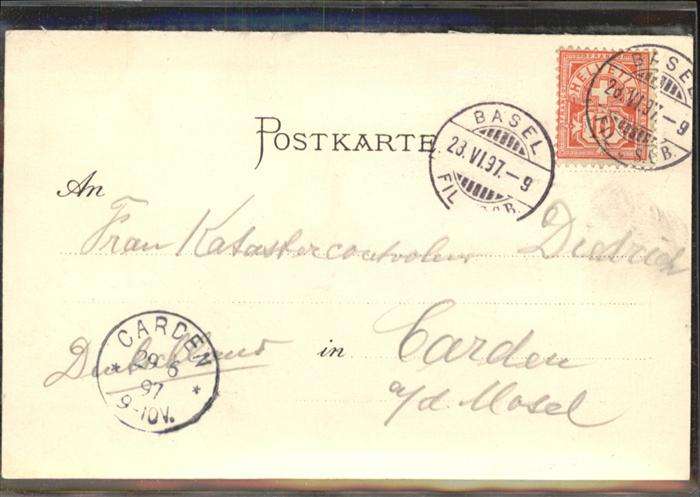 POSTKARTE
HELVETIA
10
BASEL
28.VI.97.-9
FIL. S.C.B.
BASEL
28.VI.97.-9
S.C.B.
An
Frau Katastercontroleur Dietrich
in Carden
Deutschland
a/d Mosel
CARDEN
29 6
97
9-10V.